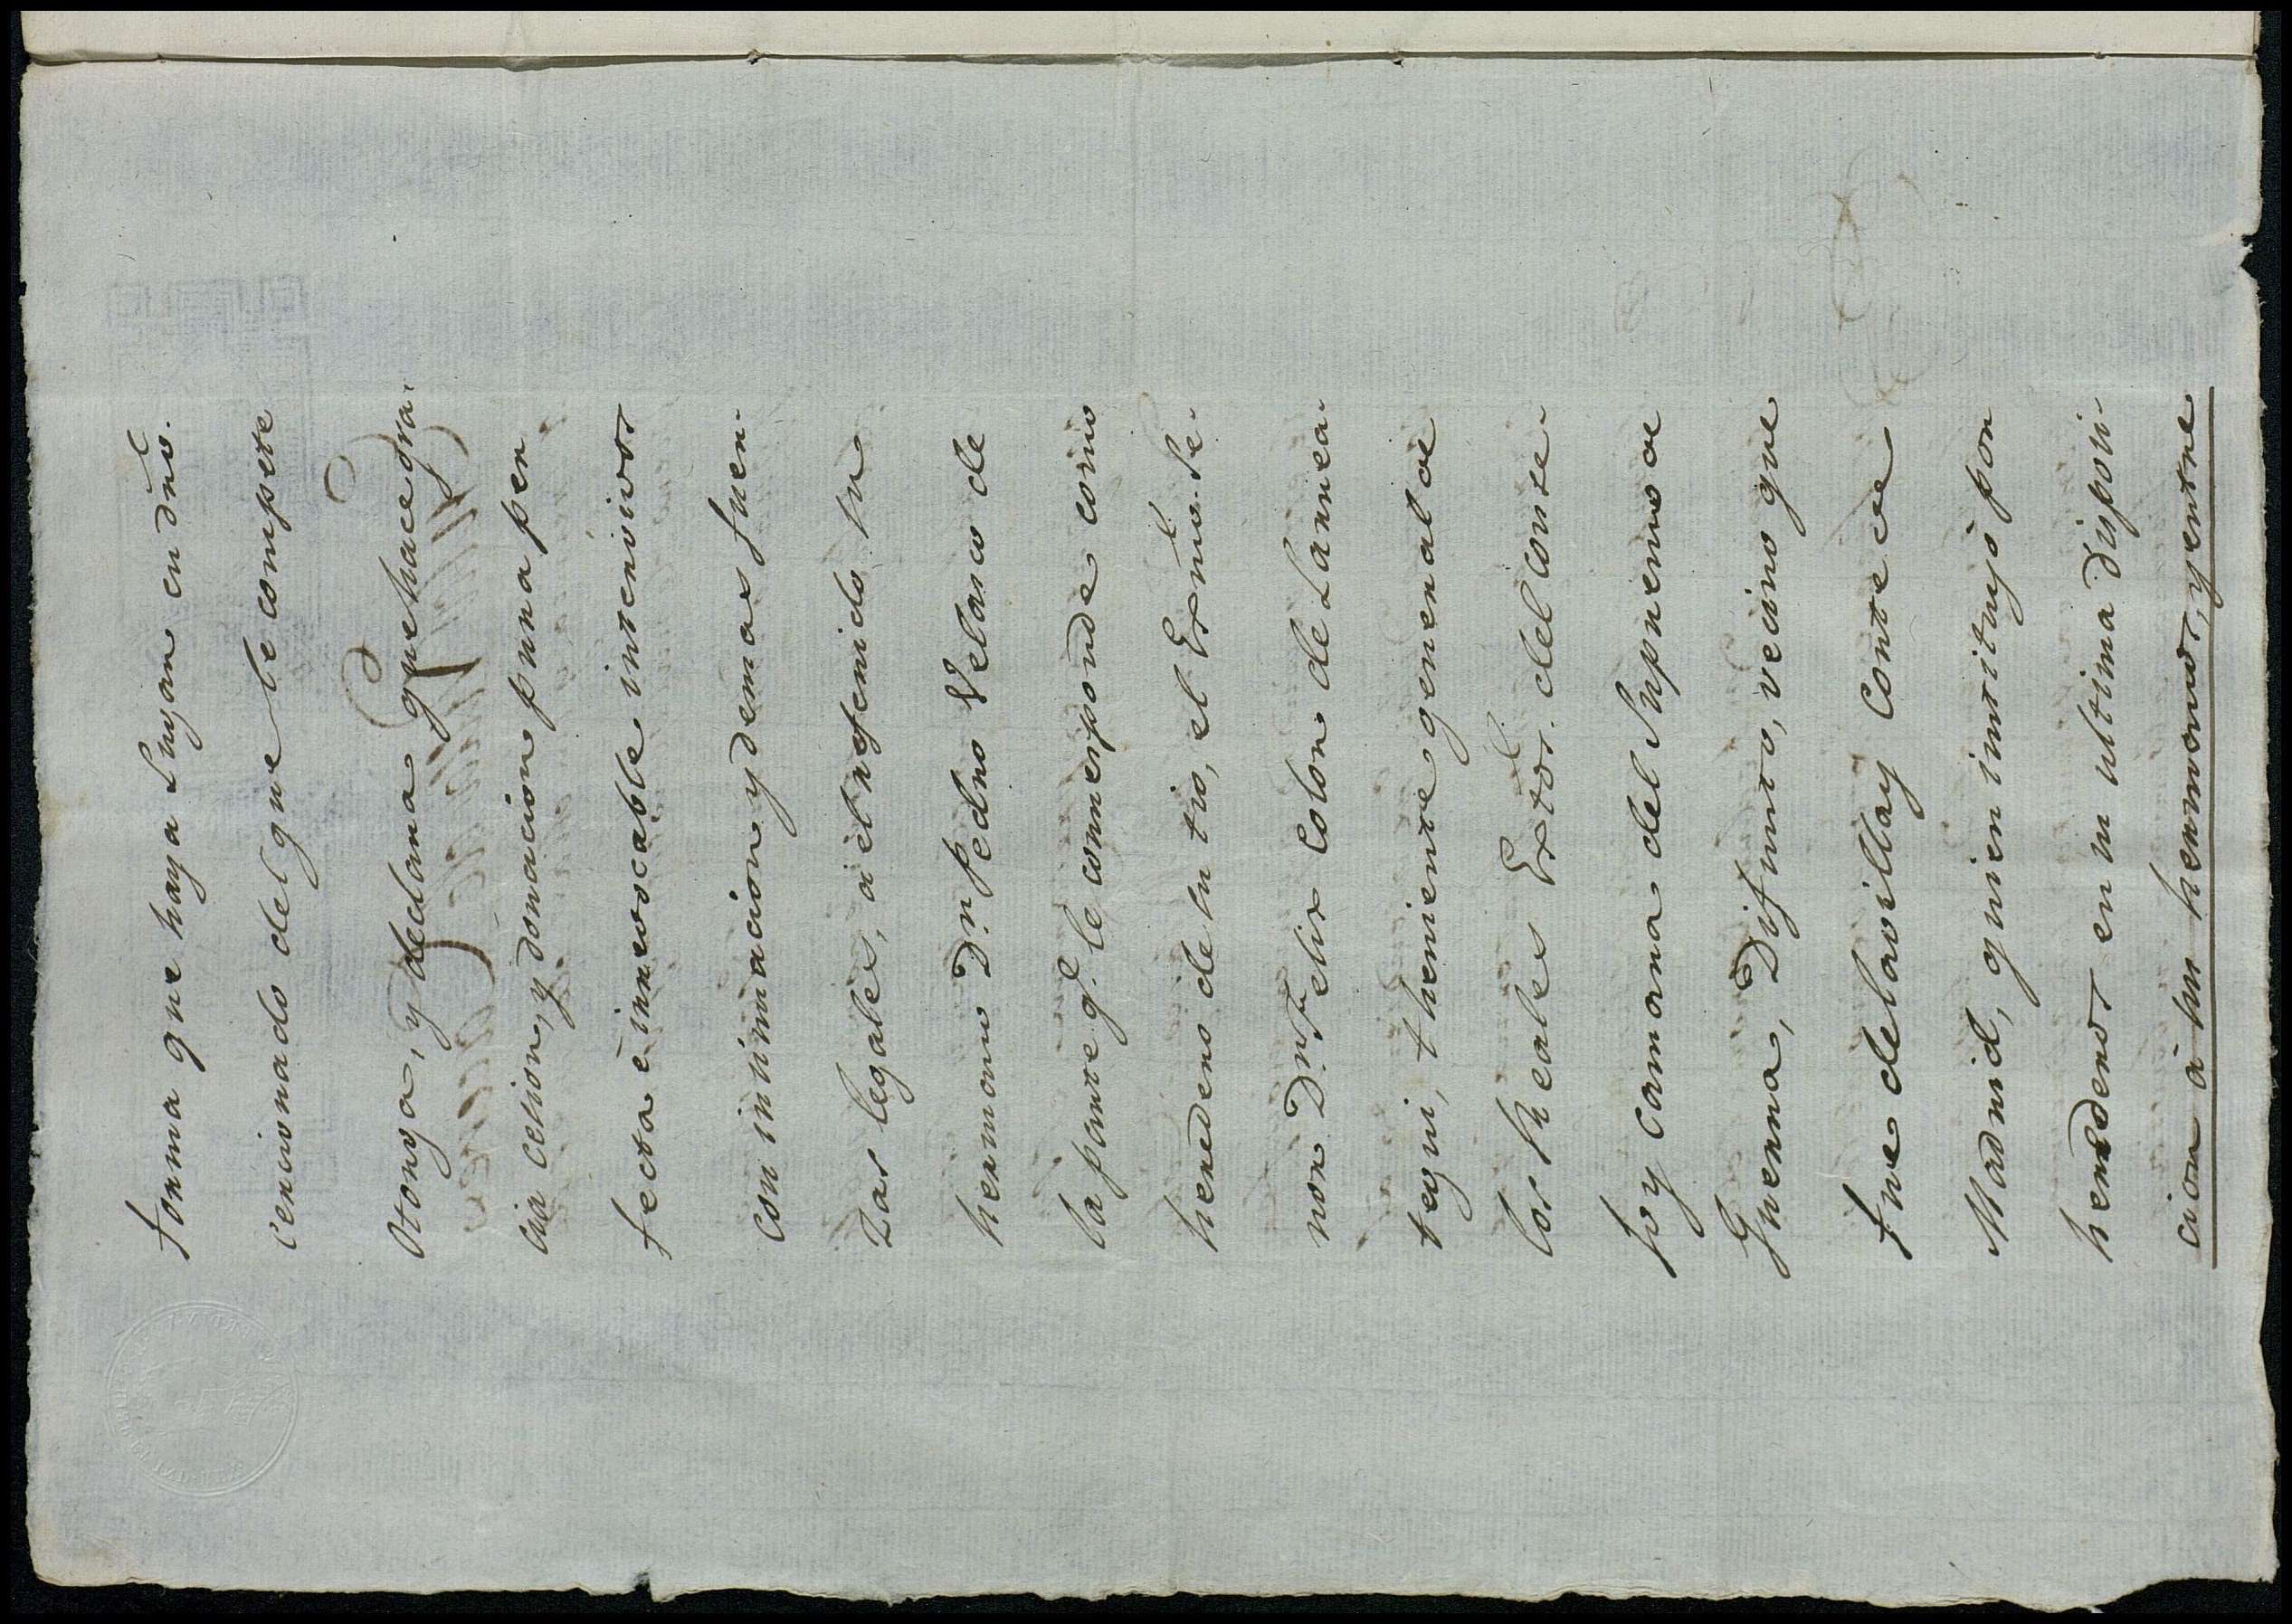 forma que haya Lugar en dro.
cerciorado del que le compete
otorga, y declara que hace gra-
cia cesion, y donacion pura per
fecta e irrevocable intervivos
con insinuacion y demas fuer-
zas legales, a el referido su
hermano Dn. Pedro Velasco de
la parte q.e le corresponde como
heredero de su tio, el Exmo. Se-
ñor Dn. Felix Colon de Larrea-
tegui, theniente general de
los Rheales Extos. del conse-
jo y camara del Supremo de
Guerra, Difunto, vecino que
fue de la villa y Corte de
Madrid, quien instituyó por
herederos en su ultima disposi-
cion à sus hermanos, y entre